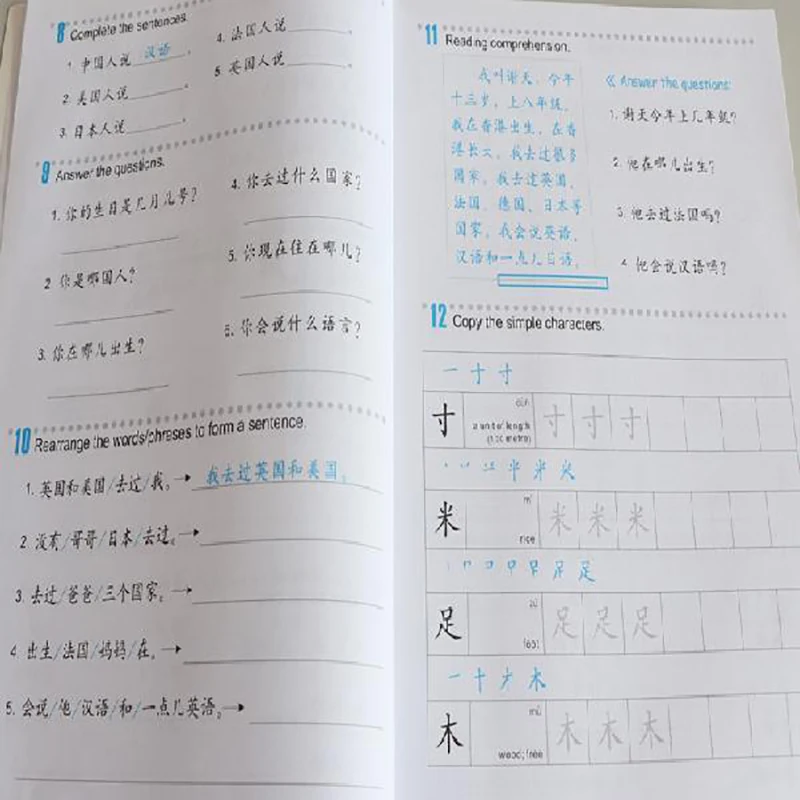 8 Complete the sentences.
1. 中国人说 汉语 。
2. 美国人说 。
3. 日本人说 。
4. 法国人说 。
5. 英国人说 。
9 Answer the questions.
1. 你的生日是几月几号?
2 你是哪国人?
3. 你在哪儿出生?
4. 你去过什么国家?
5. 你现在住在哪儿?
6. 你会说什么语言?
10 Rearrange the words/phrases to form a sentence.
1. 英国和美国/去过/我。→ 我去过英国和美国。
2. 没有/哥哥/日本/去过。→
3. 去过/爸爸/三个国家。→
4. 出生/法国/妈妈/在。→
5. 会说/他/汉语/和/一点儿英语。→
11 Reading comprehension.
我叫谢天。今年
十三岁，上八年级。
我在香港出生，在香
港长大。我去过很多
国家，我去过英国、
法国、德国、日本等
国家。我会说英语、
汉语和一点儿日语。
Answer the questions:
1. 谢天今年上几年级?
2. 他在哪儿出生?
3. 他去过法国吗?
4. 他会说汉语吗?
12 Copy the simple characters.
一 寸 寸
寸 cùn 寸 寸 寸
a unit of length
米 米
米 mǐ 米 米 米
rice
口 足 足
足 zú 足 足 足
foot
一 十 才 木
木 mù 木 木 木
wood; tree